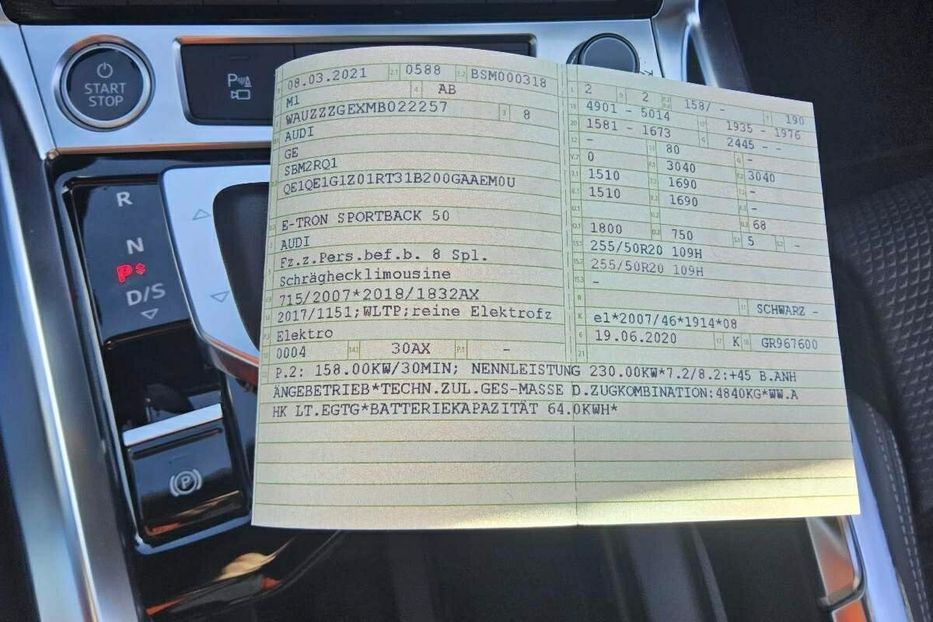 START
STOP
P
R
N
P
D/S
08.03.2021 2.1 0588 2.2 BSM000318
M1 4 AB
WAUZZZGEXMB022257 3 8
AUDI
GE
SBM2RQ1
QE1QE1G1Z01RT31B200GAAEM0U
E-TRON SPORTBACK 50
AUDI
Fz.z.Pers.bef.b. 8 Spl.
Schräghecklimousine
715/2007*2018/1832AX
2017/1151;WLTP;reine Elektrofz
Elektro
0004 30AX -
2 2 158/ - 190
4901 - 5014
1581 - 1673 1935 - 1976
- 2445 - -
80 -
0 3040 3040
1510 1690 -
1510 1690 -
68
1800 750 5 -
255/50R20 109H
255/50R20 109H
-
SCHWARZ -
K e1*2007/46*1914*08
6 19.06.2020 17 K 16 GR967600
21
P.2: 158.00KW/30MIN; NENNLEISTUNG 230.00KW*7.2/8.2:+45 B.ANH
ÄNGEBETRIEB*TECHN.ZUL.GES-MASSE D.ZUGKOMBINATION:4840KG*WW.A
HK LT.EGTG*BATTERIEKAPAZITÄT 64.0KWH*
(P)